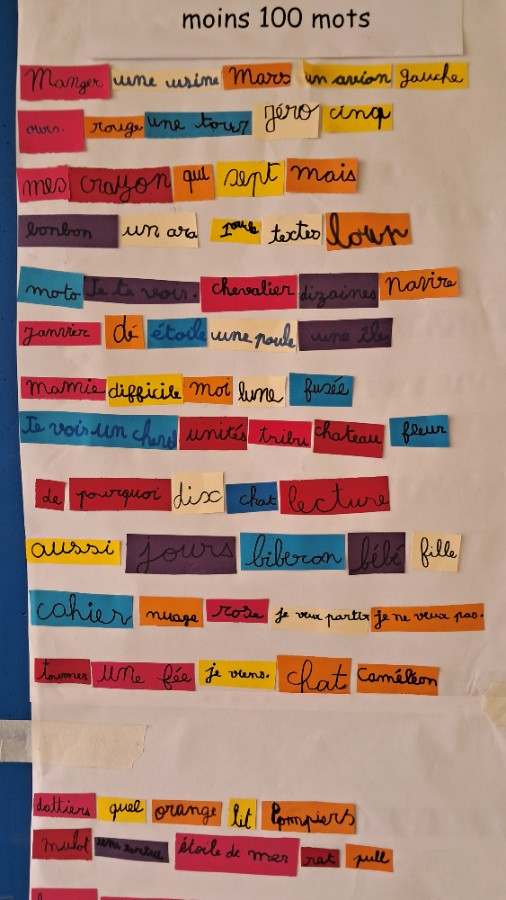 moins 100 mots
Manger une usine Mars un avion gauche
ours. rouge une tour zéro cinq
mes crayon qui sept mais
bonbon un ara textes loup
moto Je te vois. chevalier dizaines navire
janvier dé étoile une poule une île
mamie difficile moi lune fusée
Je vois un unités tribu chateau fleur
de pourquoi dix chat lecture
aussi jours biberon bébé fille
cahier nuage rose je veux partir je ne veux pas.
tourner une fée je viens. chat caméléon
dattiers quel orange lit pompiers
mulot une étoile de mer rat pull